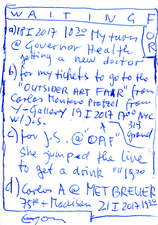 WAITING FOR
a) 18 I 2017 10:30 My turn
@ Governor Health
getting a new doctor
b) for my tickets to go to the
"OUTSIDER ART FAIR" from
Carlos Montero Protect from
Y-Gallery 19 I 2017 1700 NYC
w/ J.S. 319 Grand
c) for J.S. @ "OAF"
she jumped the line
to get a drink "1920
d) Carlos A @ MET BREUER
75th + Madison 21 I 2017